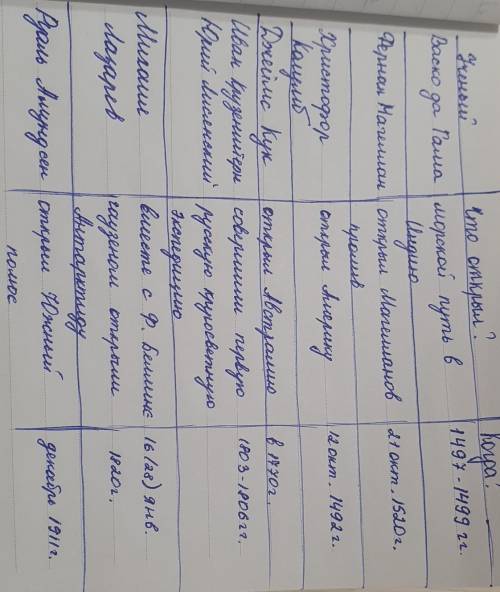 Ученый Что открыл? Когда?
Васко да Гама Морской путь в 1497-1499 гг.
Индию
Фернан Магеллан открыл Магелланов 21 окт. 1520г.
пролив
Христофор открыл Америку 12 окт. 1492г.
Колумб
Джеймс Кук открыл Австралию в 1770г.
Иван Крузенштерн совершили первую 1803-1806гг.
Юрий Лисянский русскую кругосветную
экспедицию
Михаил вместе с Ф. Беллинс 16 (28) янв.
Лазарев гаузеном открыли 1820г.
Антарктиду
Руаль Амундсен открыл Южный декабрь 1911г.
полюс